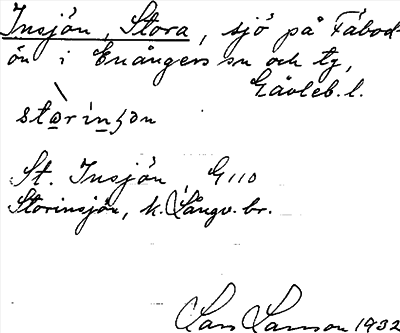 Insjön, Stora, sjö på Fäbod-
ön i Enångers sn och tg,
Gävleb. l.
störinʃɔn
St. Insjön G110
Storinsjön, k. Långv. br.
Lars Larsson 1932